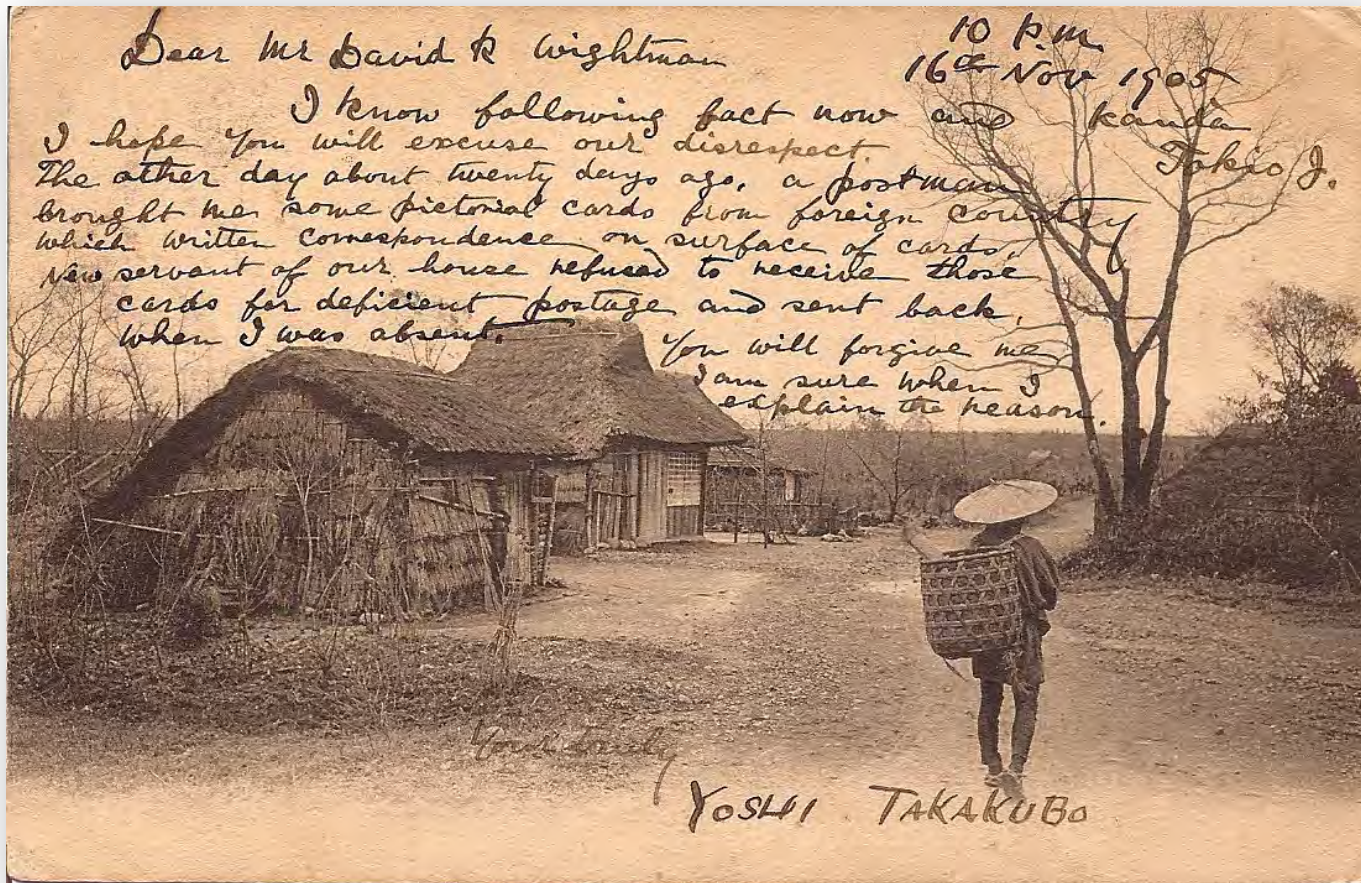 10 P.m.
16th Nov 1905
Kanda
Tokio J.
Dear Mr David R Wightman
I know following fact now and
I hope you will excuse our disrespect.
The other day about twenty days ago, a postman
brought me some pictorial cards from foreign country
which written correspondence on surface of cards,
New servant of our house refused to receive those
cards for deficient postage and sent back,
when I was absent.
You will forgive me
I am sure when I
explain the reason.
Yours truly
YOSHI TAKAKUBO